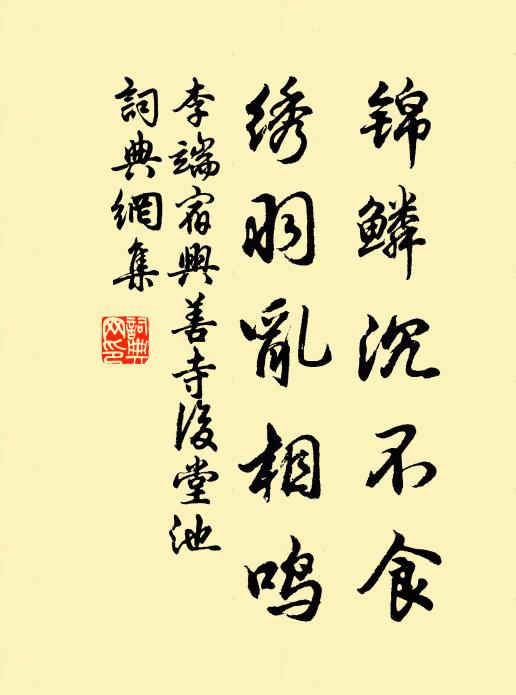 锦鳞沉不食
绣羽亂相鸣
李端宿興善寺後堂池
詞典網集
詞典
网印